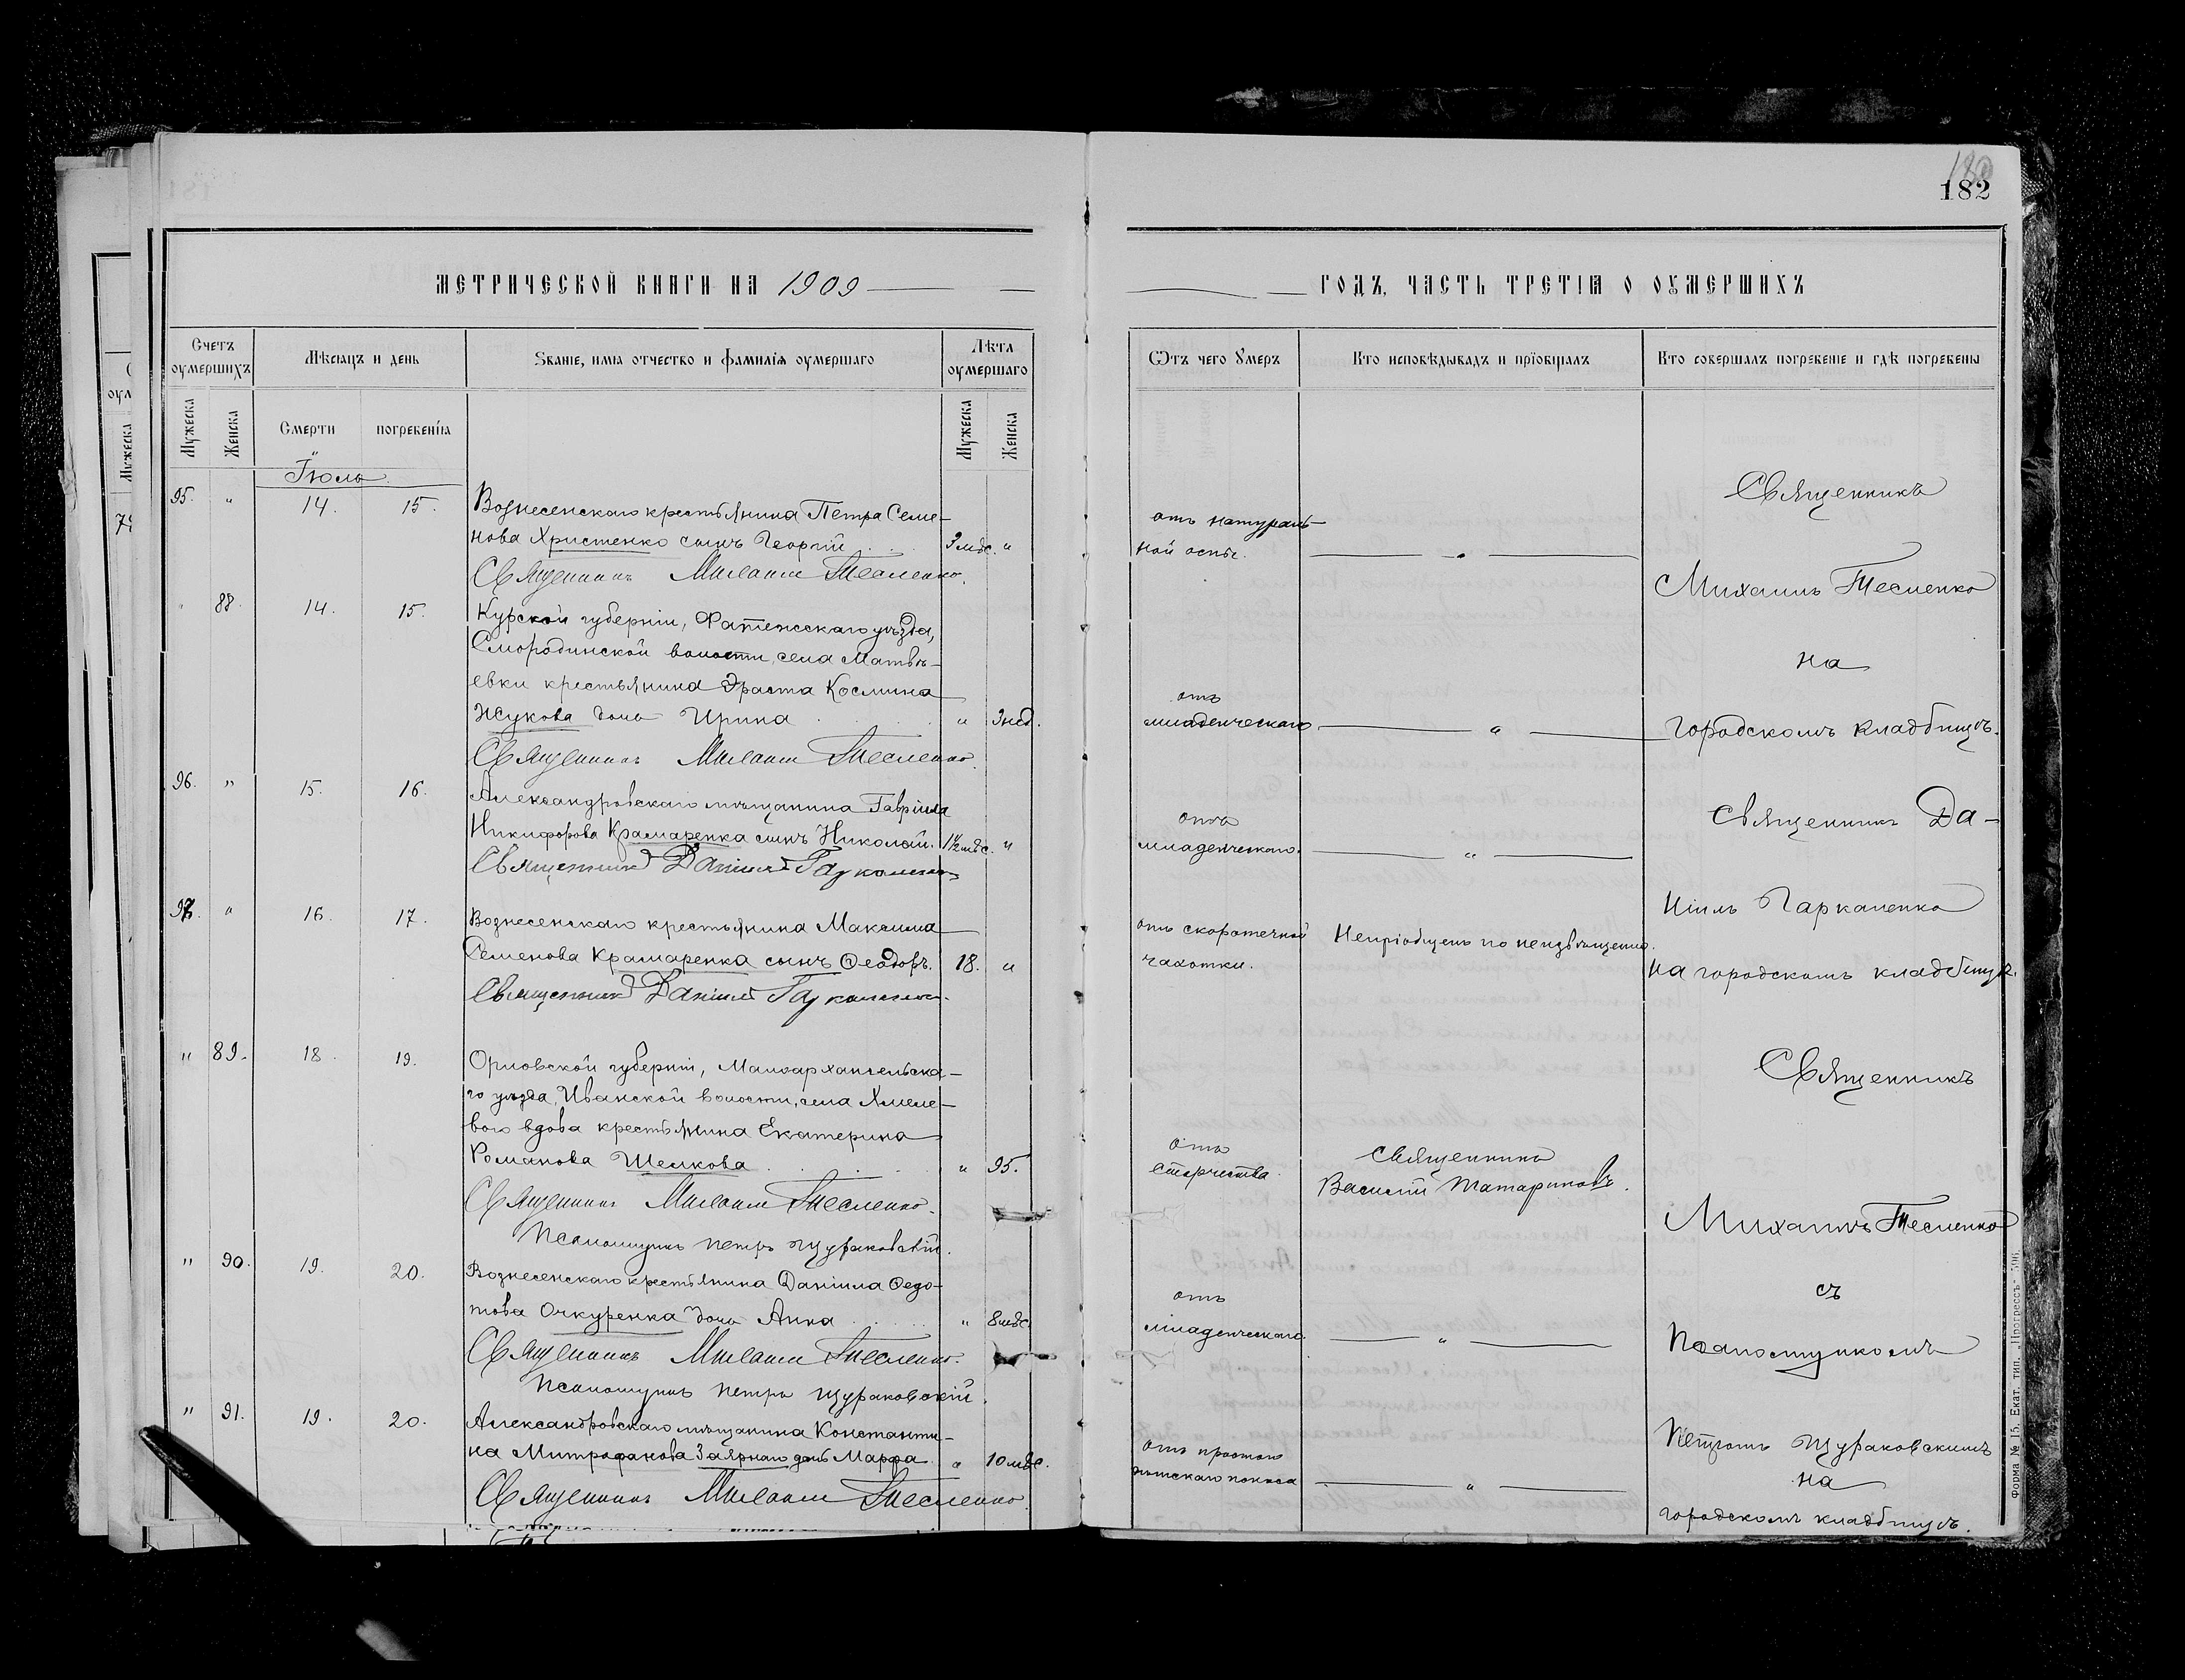 182
МЕТРИЧЕСКОЙ КНИГИ НА 1909
ГОДЪ, ЧАСТЬ ТРЕТІЯ О ОУМЕРШИХЪ
Счетъ оумершихъ
Мѣсяцъ и день
Званіе, имя отчество и фамилія оумершаго
Лѣта оумершаго
Отъ чего умеръ
Кто исповѣдывалъ и пріобщалъ
Кто совершалъ погребеніе и гдѣ погребены
Мужеска
Женска
Смерти
погребенія
Мужеска
Женска
Іюль
95. " 14. 15. Вознесенскаго крестьянина Петра Семе-
нова Христенко сынъ Георгій 3 мѣс. "
отъ натураль-
ной оспы.
Священникъ Михаилъ Тесленко.
" 88. 14. 15. Курской губерніи, Фатежскаго уѣзда,
Смородинской волости, села Матвѣ-
евки крестьянина Эраста Космина
Жукова дочь Ирина " 3 нед.
отъ
младенческаго
Священникъ Михаилъ Тесленко.
Священникъ
Михаилъ Тесленко
на
городскомъ кладбищѣ.
96. " 15. 16. Александровскаго мѣщанина Гавріила
Никифорова Крамаренка сынъ Николай. 1½ мѣс. "
отъ
младенческаго.
Священникъ Даніилъ Гаркаленко
97. " 16. 17. Вознесенскаго крестьянина Максима
Семенова Крамаренка сынъ Ѳеодоръ. 18. "
отъ скоротечной
чахотки.
Непріобщенъ по неизвѣщенію.
Священникъ Даніилъ Гаркаленко.
Священникъ Да-
ніилъ Гаркаленко
на городскомъ кладбищѣ.
" 89. 18. 19. Орловской губерніи, Малоархангельска-
го уѣзда, Ивановской волости, села Хмеле-
вого вдова крестьянина Екатерина
Романова Шелкова " 95.
отъ
старчества.
Священникъ
Василій Татариновъ.
Священникъ Михаилъ Тесленко.
Псаломщикъ Петръ Щураковскій.
" 90. 19. 20. Вознесенскаго крестьянина Даніила Ѳедо-
това Очкуренка дочь Анна " 8 мѣс.
отъ
младенческаго.
Священникъ Михаилъ Тесленко.
Псаломщикъ Петръ Щураковскій.
" 91. 19. 20. Александровскаго мѣщанина Константи-
на Митрофанова Заярнаго дочь Марфа " 10 мѣс.
отъ простого
дѣтскаго поноса
Священникъ Михаилъ Тесленко.
Священникъ
Михаилъ Тесленко
съ
Псаломщикомъ
Петромъ Щураковскимъ
на
городскомъ кладбищѣ.
Форма № 15. Екат. тип. „Прогрессъ"